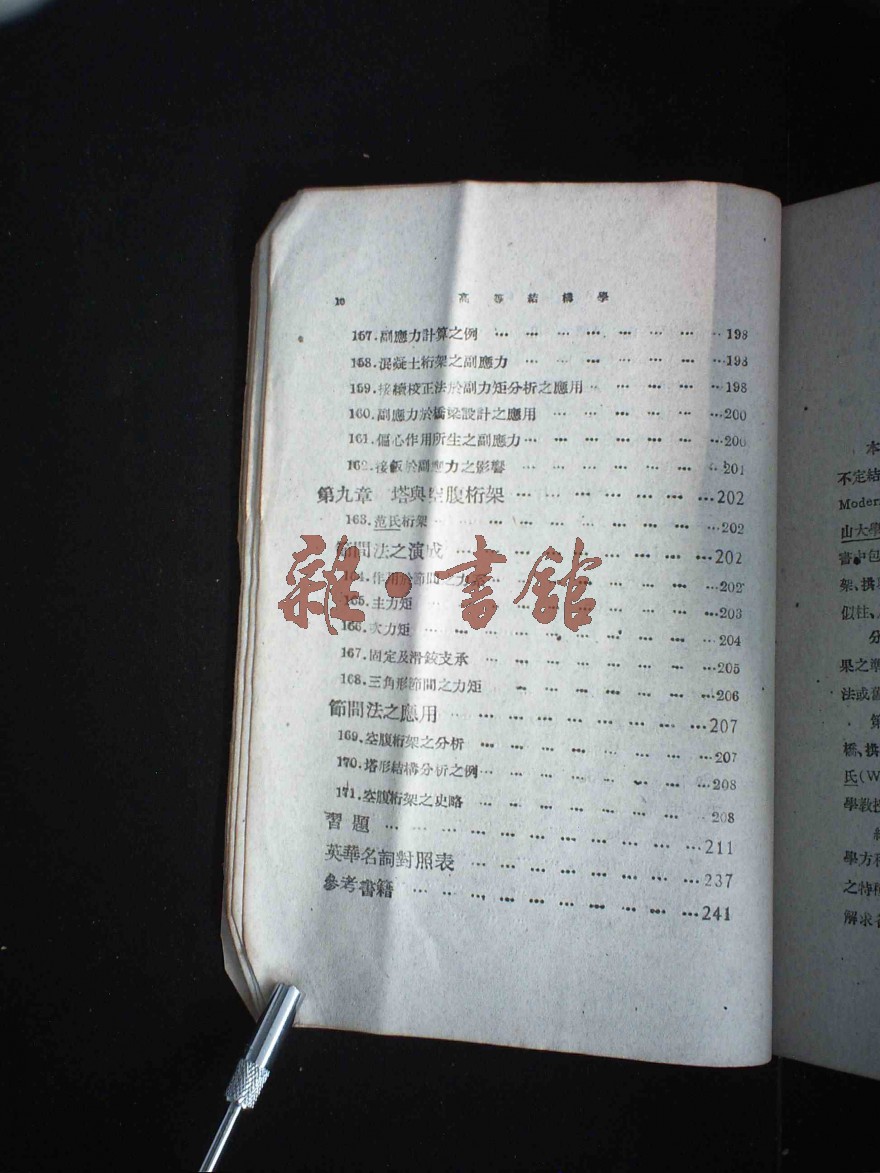 10 高等結構學
157.副應力計算之例 … … … … … … …198
158.混凝土桁架之副應力 … … … … … …198
159.接續校正法於副力矩分析之應用 … … … …198
160.副應力於橋梁設計之應用 … … … … …200
161.偏心作用所生之副應力… … … … … …200
162.接飯於副應力之影響 … … … … … …201
第九章 塔與空腹桁架 … … … … … …202
163.范氏桁架 … … … … … … …202
節間法之演成 … … … … … … …202
164.作用於節間之力 … … … … …202
165.主力矩 … … … … … … …203
166.次力矩 … … … … … … …204
167.固定及滑鉸支承 … … … … … …205
168.三角形節間之力矩 … … … … … …206
節間法之應用 … … … … … … …207
169.空腹桁架之分析 … … … … … … …207
170.塔形結構分析之例… … … … … … …208
171.空腹桁架之史略 … … … … … … 208
習題 … … … … … … … … …211
英華名詞對照表 … … … … … … …237
參考書籍 … … … … … … … …241
雜·書館
本
不定結
Modern
山大學
書中包
架、拱
假柱、
分
果之準
法或舊
第
橋、拱
氏(W
學教授
學方程
之特
解求